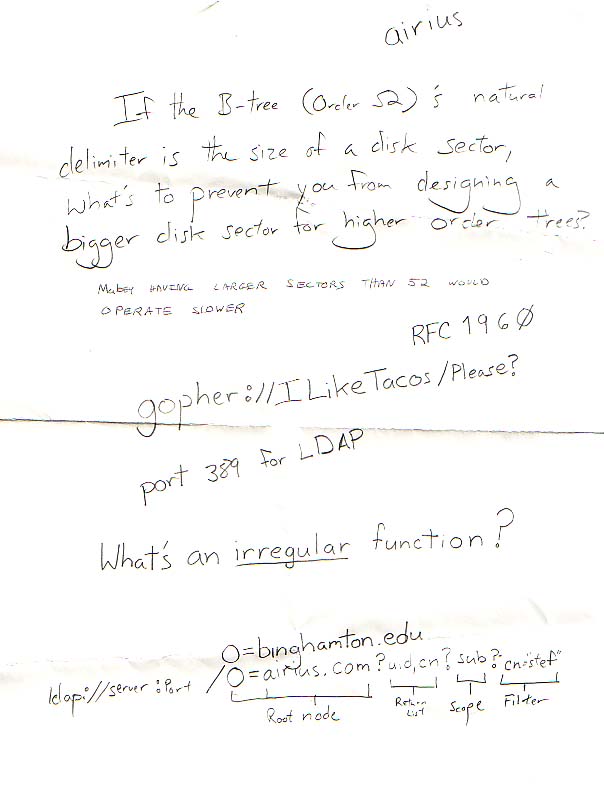 airius
If the B-tree (Order 52)'s natural
delimiter is the size of a disk sector,
what's to prevent you from designing a
bigger disk sector for higher order trees?
Mabey HAVING LARGER SECTORS THAN 52 WOULD
OPERATE SLOWER
RFC 1960
gopher://ILikeTacos/Please?
port 389 for LDAP
What's an irregular function?
O=binghamton.edu
ldap://server:Port /O=airius.com?uid,cn?sub?cn="stef"
Root node Return List Scope Filter